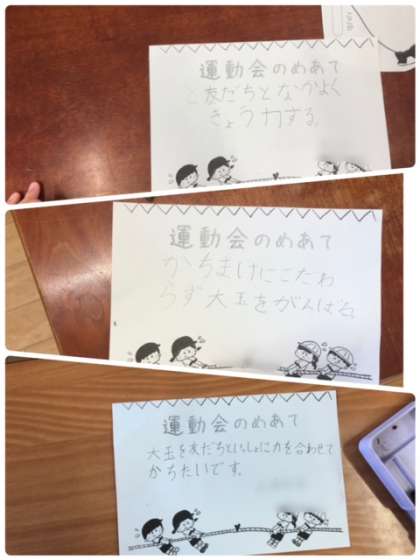 運動会のめあて
友だちとなかよく
きょう力する。
運動会のめあて
かちまけにこだわ
らず大玉をがんばる。
運動会のめあて
大玉を友だちといっしょに力を合わせて
かちたいです。